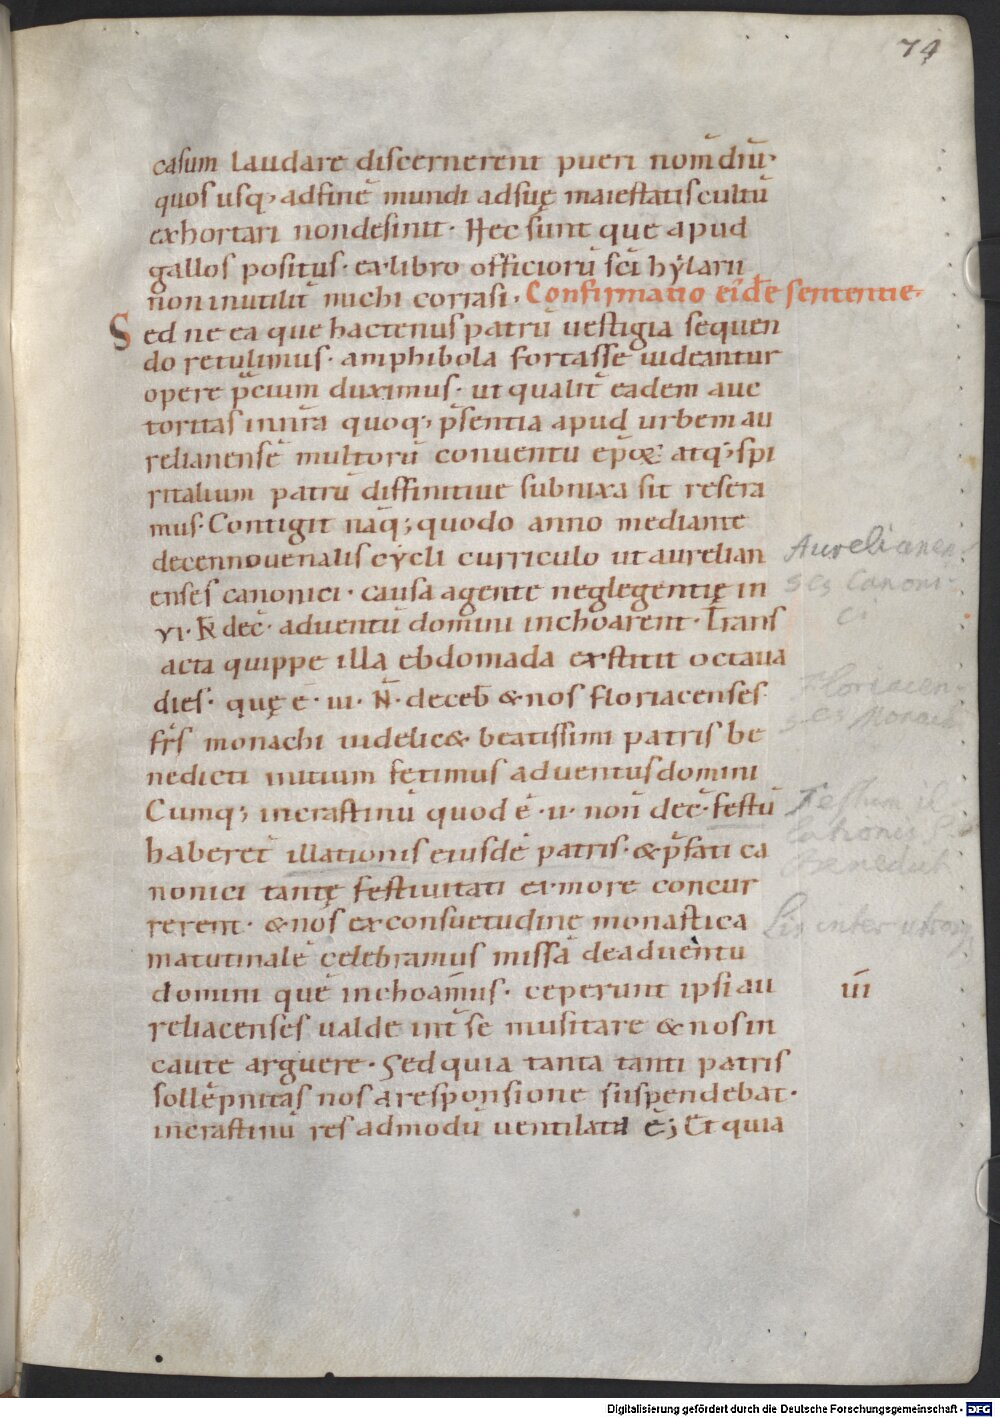 74
casum laudare discernerent pueri nom̄ dn̄i·
quos usq; ad finē mundi ad suę maiestatis cultū
exhortari non desinit· Hec sunt que apud
gallos positus· ex libro officiorū sc̄i hẏlarii
non inutilit̄ michi corrasi· Confirmatio eiꝰdē sententie·
Sed ne ea que hactenus patrū uestigia sequen
do retulimus· amphibola fortasse uideantur
opere p̄cium duximus· ut qualit̄ eadem auc
toritas in nr̄a quoq; p̄sentia apud urbem au
relianensē multorū conuentu ep̄oꝝ atq; spi
ritalium patrū diffinitiue subnixa sit resera
mus· Contigit naq̄; quodo anno mediante
decennouenalis cẏcli curriculo ut aurelian
enses canonici· causa agente neglegentię in
vi· K̄ dec̄· aduentū domini inchoarent· Trans
acta quippe illa ebdomada exstitit octaua
dies· quę ē· iii· N̄· deceb̄ & nos floriacenses
fr̄s monachi uidelic& beatissimi patris be
nedicti initium fecimus aduentus domini
Cumq; in crastinū quod ē· ii· non̄ dec̄· festū
haberet̄ illationis eiusdē patris· & p̄fati ca
nonici tantę festiuitati ex more concur
rerent· & nos ex consuetudine monastica
matutinalē celebramus missā de aduentu
domini quē inchoam̄us· ceperunt ipsi au
reliacenses ualde int̄ se musitare & nos in
caute arguere· Sed quia tanta tanti patris
sollēpnitas nos a responsione suspendebat·
in crastinū res admodū uentilata ē; Et quia
Aurelianen-
ses Canoni-
ci
Floriacen-
ses Monachi
Festum il-
lationis S.
Benedicti
Lis inter utrosq;
iii
Digitalisierung gefördert durch die Deutsche Forschungsgemeinschaft - DFG